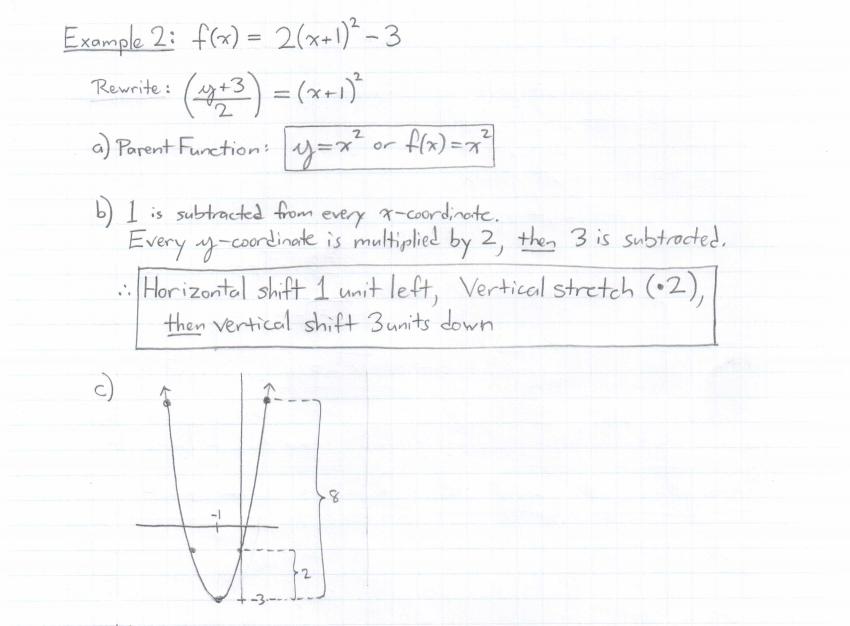 Example 2: f(x) = 2(x+1)² - 3
Rewrite: ((y+3)/2) = (x+1)²
a) Parent Function: y=x² or f(x)=x²
b) 1 is subtracted from every x-coordinate.
Every y-coordinate is multiplied by 2, then 3 is subtracted.
∴ Horizontal shift 1 unit left, Vertical stretch (•2),
then vertical shift 3 units down
c)
8
-1
2
-3